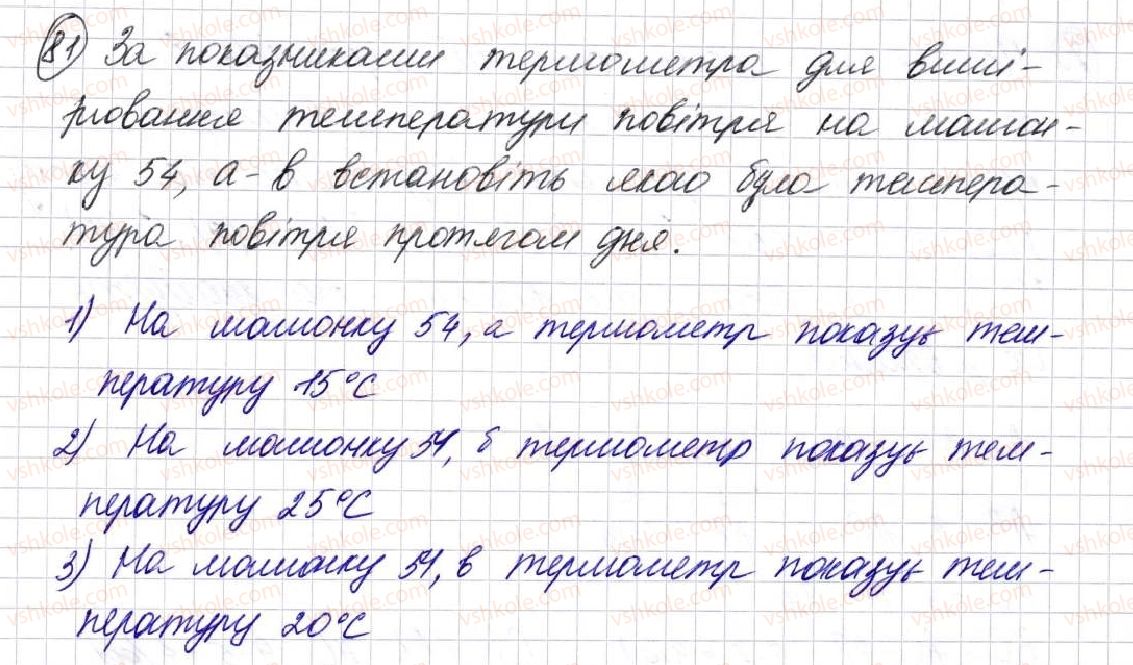 81) За показниками термометра для вимі-
рювання температури повітря на малюн-
ку 54, а-в встановіть якою була темпера-
тура повітря протягом дня.
1) На малюнку 54, а термометр показує тем-
пературу 15°С
2) На малюнку 54, б термометр показує тем-
пературу 25°С
3) На малюнку 54, в термометр показує тем-
пературу 20°С